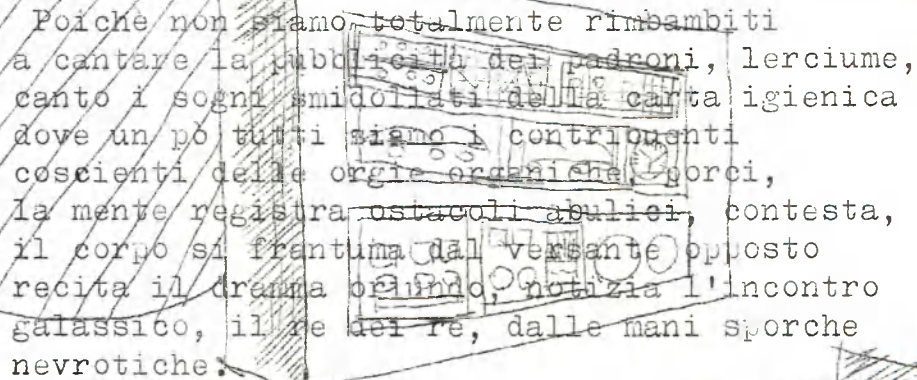 Poiche non siamo totalmente rimbambiti
a cantare la pubblicità dei padroni, lerciume,
canto i sogni smidollati della carta igienica
dove un pò tutti siamo i contribuenti
coscienti delle orgie organiche, porci,
la mente registra ostacoli abulici, contesta,
il corpo si frantuma dal versante opposto
recita il dramma oriundo, notizia l'incontro
galassico, il re dei re, dalle mani sporche
nevrotiche.